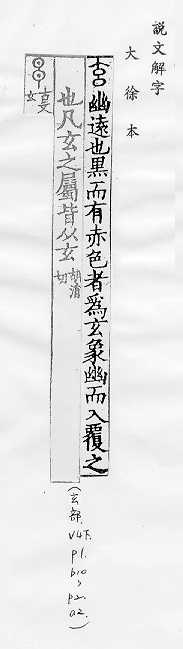 説文解字
大徐本
玄幽遠也黑而有赤色者爲玄象幽而入覆之
也凡玄之屬皆从玄胡涓切
古文玄
(玄部. V4下. p1. b10 ~ p2. a2.)